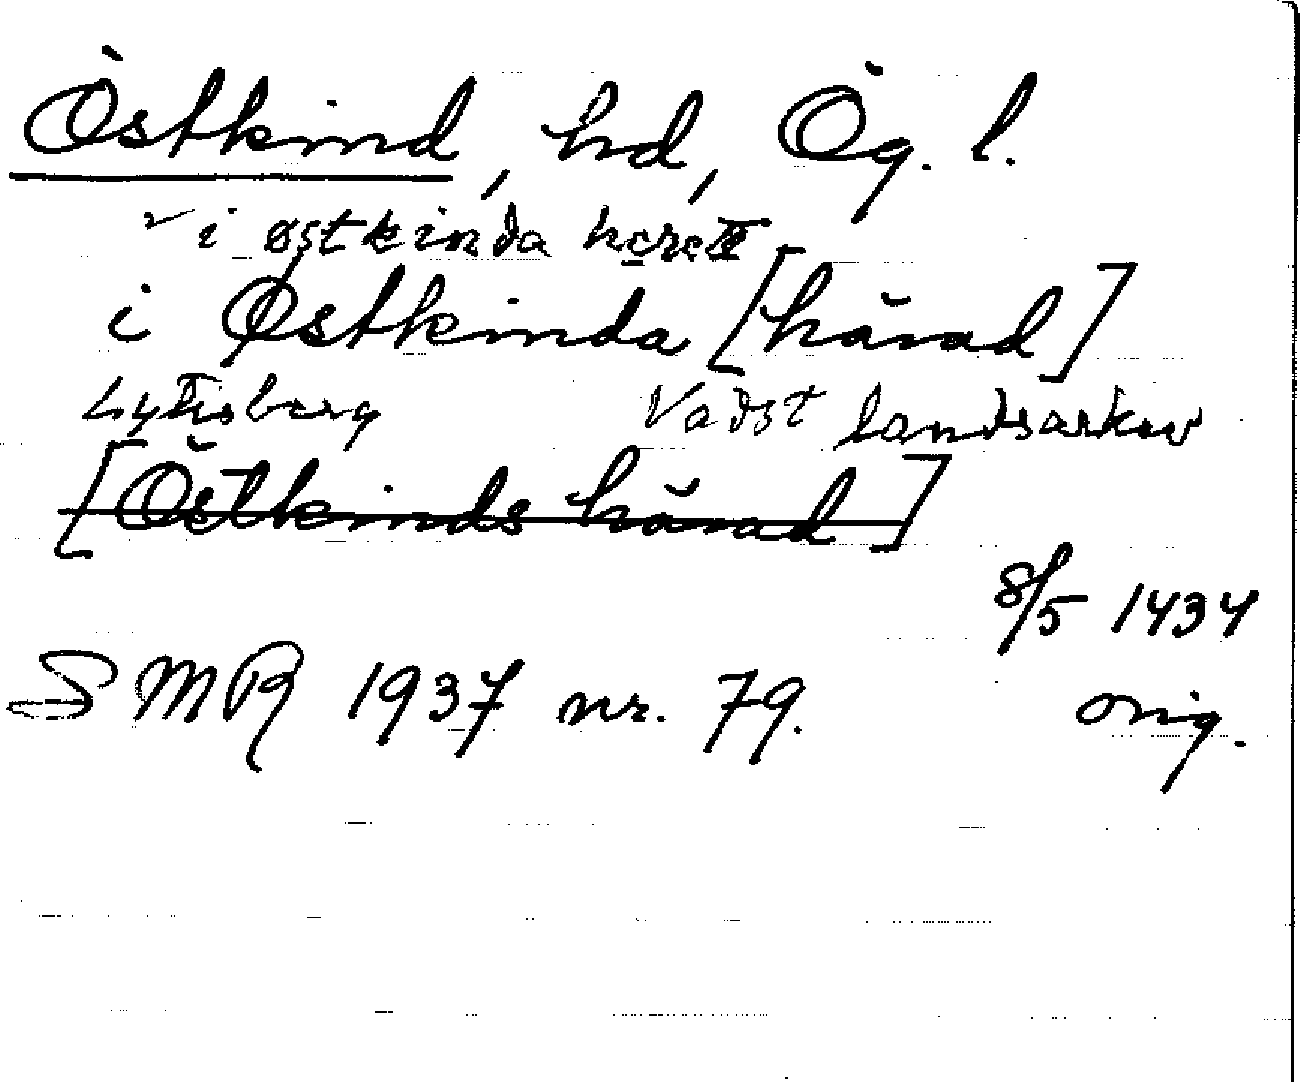 Östkind, hd, Ög. l.
i østkinda
i Østkinda [härad]
Lytisberg Vadst landsarkiv
[Östkinds härad]
8/5 1434
SMR 1937 nr. 79. orig.